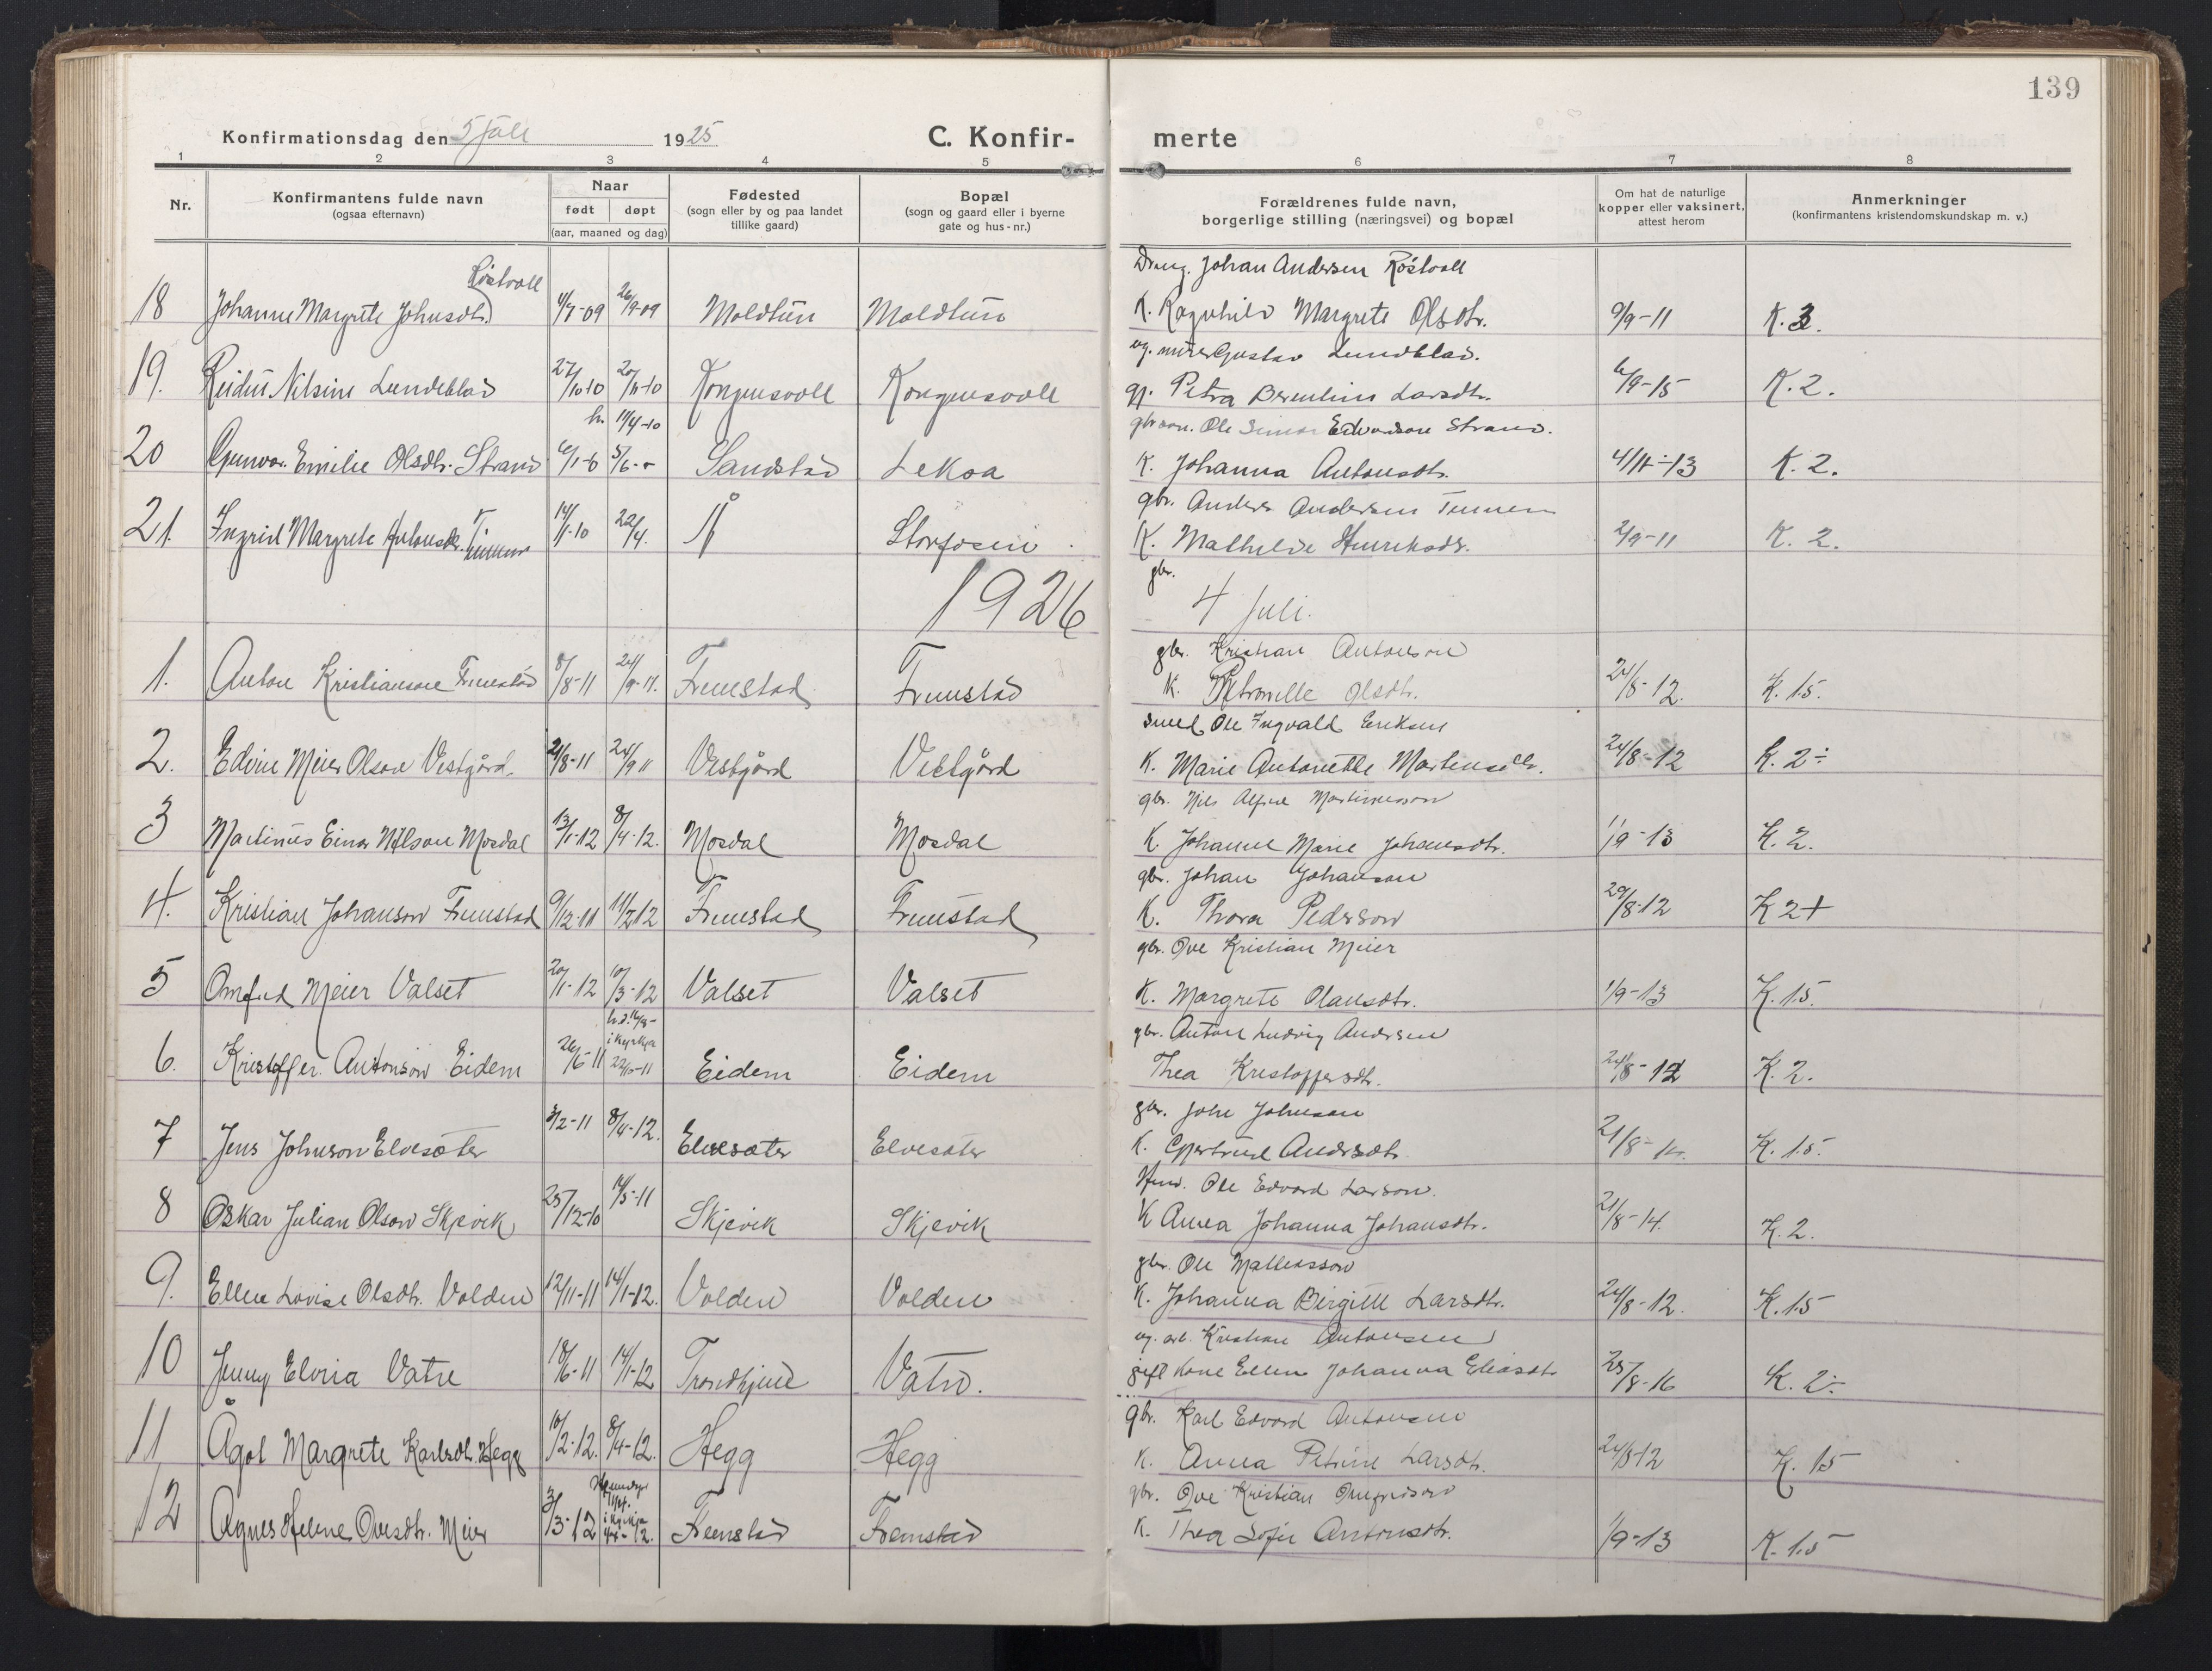 139
Konfirmationsdag den 5 juli 1925 C. Konfir- merte
1 2 3 4 5 6 7 8
Nr. Konfirmantens fulde navn (ogsaa efternavn) Naar født døpt (aar, maaned og dag) Fødested (sogn eller by og paa landet tillike gaard) Bopæl (sogn og gaard eller i byerne gate og hus-nr.) Forældrenes fulde navn, borgerlige stilling (næringsvei) og bopæl Om hat de naturlige kopper eller vaksinert, attest herom Anmerkninger (konfirmantens kristendomskundskap m. v.)
Johan Andersen Röstvoll
Röstvoll
18 Johanne Margrete Johnsdtr. 4/7-09 26/9-09 Moldtun Moldtun K. Ragnhild Margrete Olsdtr. 9/9-11 K. 3.
ug. murer Gustav Lundblad.
19. Reidun Nilsine Lundeblad 27/10-10 20/11-10 Kongensvoll Kongensvoll gp. Petra Berentine Larsdtr. 6/9-15 K. 2.
h. 11/4-10
gbr. søn. Ole Simon Edvardson Strand.
20 Gunvor Emilie Olsdtr. Strand 6/1-10 5/6-" Sandstad Leksa K. Johanna Antonsdtr. 4/11-13 K. 2.
gbr. Anders Andersen Tinnen
21. Ingrid Margrete Antonsdtr. Tinnen 14/1-10 22/4. Å Storfosen K. Mathilde Henriksdtr. 2/9-11 K. 2.
gbr.
1926 4 juli.
gbr. Kristian Antonson
1. Anton Kristianson Fremstad 8/8-11 24/9-11. Fremstad Fremstad K. Petronelle Olsdtr. 24/8-12. K. 1.5.
Smed Ole Ingvald Eriksen
2. Edvin Meier Olson Vestgård. 21/8-11 24/9 11 Vestgård Vestgård K. Marie Antonette Martensdtr. 24/8-12 K. 2÷
gbr. Nils Alfred Martinusson
3 Martinus Einar Nilson Mosdal 13/1-12 8/4-12. Mosdal Mosdal K. Johanne Marie Johansdtr. 1/9-13 K. 2.
gbr. Johan Johanson
4. Kristian Johanson Fremstad 9/12-11 11/2 12 Fremstad Fremstad K. Thora Pederson 29/8-12 K 2+
gbr. Ove Kristian Meier
5 Arnfred Meier Valset 20/1-12 10/3-12 Valset Valset K. Margrete Olausdtr. 1/9-13 K. 1.5.
h.d. 16/8-
i kyrkja
gbr. Anton Ludvig Andersen
6. Kristoffer Antonson Eidem 26/6-11 22/10-11 Eidem Eidem Thea Kristoffersdtr. 24/8-12 K. 2.
gbr. John Johnson
7 Jens Johnson Elvesæter 3/2-11 8/4-12. Elvesæter Elvesæter K. Gjertrud Andersdtr. 21/8-14. K. 1.5.
Ole Edvard Larson.
8 Oskar Julian Olson Skjevik 25/12-10 14/5-11 Skjevik Skjevik K Anna Johanna Johansdtr. 21/8-14. K. 2.
gbr. Ole Mathiasson
9. Ellen Lovise Olsdtr. Volden 12/11-11 14/1-12. Volden Volden K. Johanna Birgitte Larsdtr. 24/8-12. K. 1.5
ug. arb. Kristian Antonsen
10 Jenny Elvira Vatn 18/6-11 14/1-12 Trondhjem Vatn. gift kone Ellen Johanna Eliasdtr 25/8-16 K. 2÷
gbr. Karl Edvard Antonsen
11 Ågot Margrete Karlsdtr. Hegg 10/2-12. 8/4-12. Hegg Hegg K. Anna Petrine Larsdtr. 24/8-12 K. 1.5
gbr. Ove Kristian Arnfredson
12 Agnes Helene Ovesdtr. Meier 3/3-12 i kyrkja Fremstad Fremstad K. Thea Sofie Antonsdtr. 1/9-13 K. 1.5